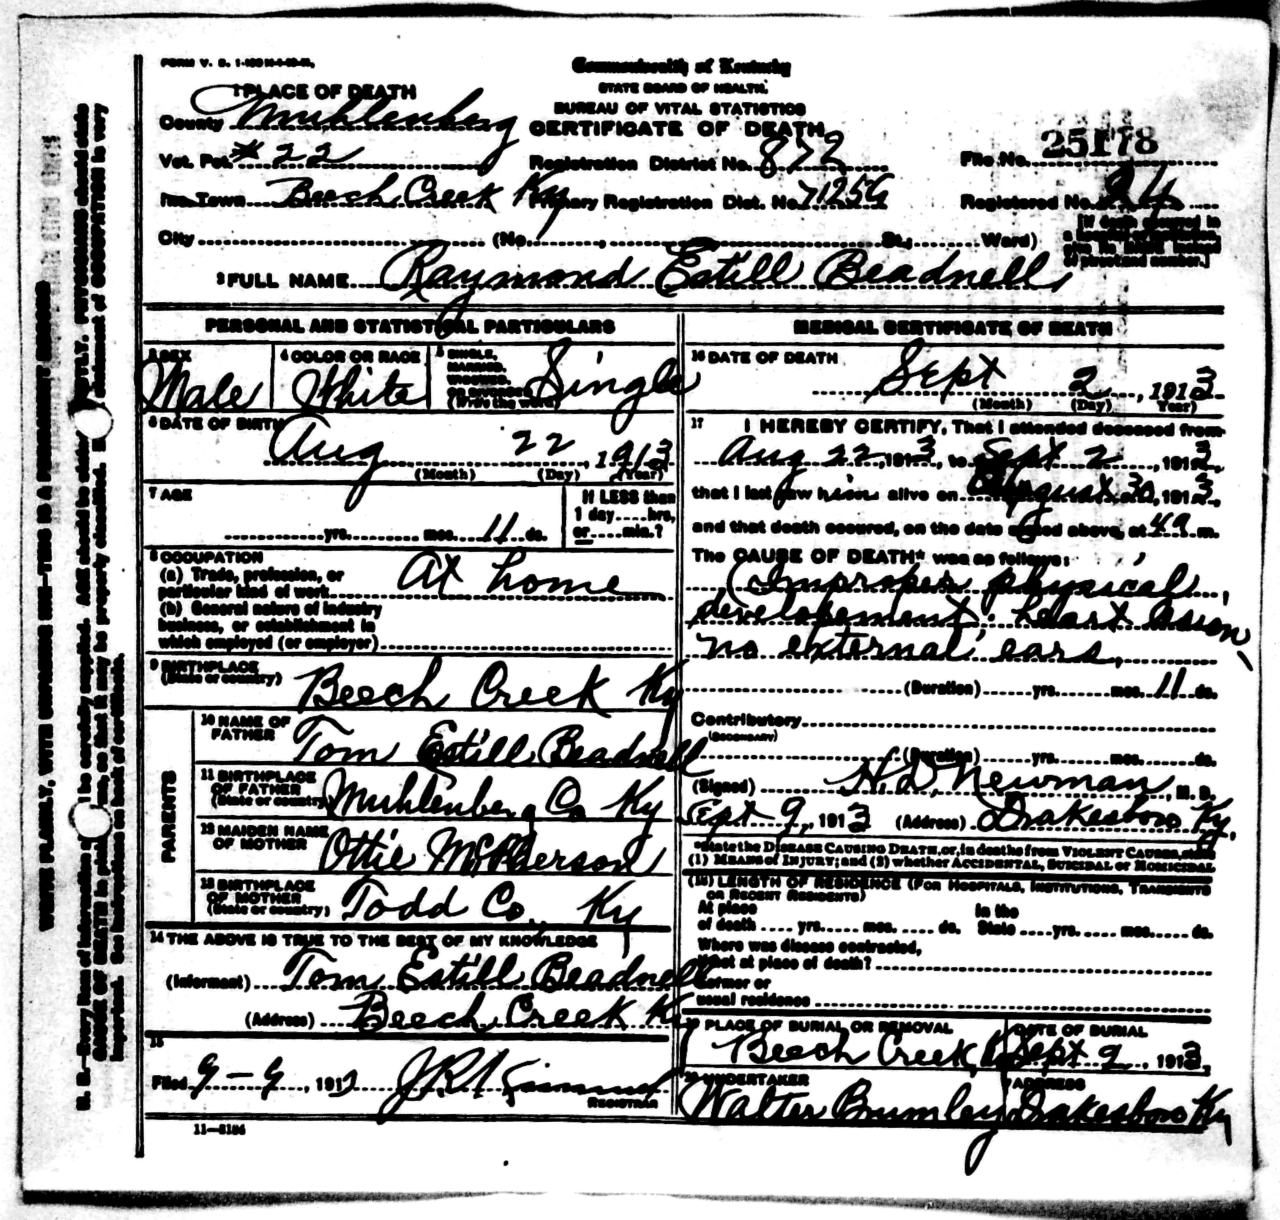 FORM V. S. 1-
Commonwealth of Kentucky
STATE BOARD OF HEALTH.
BUREAU OF VITAL STATISTICS
CERTIFICATE OF DEATH
1 PLACE OF DEATH
County Muhlenberg
Vot. Pct. # 22 Registration District No. 872 File No. 25178
Inc. Town Beech Creek Ky Primary Registration Dist. No. 7125G Registered No. 24
City (No. , St.; Ward) [If death occurred in
2 FULL NAME Raymond Estill Beadnell
PERSONAL AND STATISTICAL PARTICULARS
3 SEX Male
4 COLOR OR RACE White
5 SINGLE, MARRIED, WIDOWED, OR DIVORCED (Write the word) Single
6 DATE OF BIRTH Aug 22, 1913
(Month) (Day) (Year)
7 AGE yrs. mos. 11 ds.
If LESS than
1 day hrs,
or min.?
8 OCCUPATION
(a) Trade, profession, or
particular kind of work At home
(b) General nature of industry
business, or establishment in
which employed (or employer)
9 BIRTHPLACE
(State or country) Beech Creek Ky
PARENTS
10 NAME OF
FATHER Tom Estill Beadnell
11 BIRTHPLACE
OF FATHER
(State or country) Muhlenberg Co Ky
12 MAIDEN NAME
OF MOTHER Ottie McPherson
13 BIRTHPLACE
OF MOTHER
(State or country) Todd Co., Ky
14 THE ABOVE IS TRUE TO THE BEST OF MY KNOWLEDGE
(Informant) Tom Estill Beadnell
(Address) Beech Creek Ky
15
Filed 9-9, 191 J.R.
REGISTRAR
11-3184
MEDICAL CERTIFICATE OF DEATH
16 DATE OF DEATH
Sept 2, 1913
(Month) (Day) Year)
17 I HEREBY CERTIFY, That I attended deceased from
Aug 22, 1913, to Sept 2, 1913,
that I last saw him alive on August 30, 1913,
and that death occured, on the date stated above, at 4 a m.
The CAUSE OF DEATH* was as follows:
Improper physical
developement. heart
no external ears,
(Duration) yrs. mos. 11 ds.
Contributory
(SECONDARY)
(Duration) yrs. mos. ds.
(Signed) H. D. Newman, M. D.
Sept 9, 1913 (Address) Drakesboro Ky.
*State the DISEASE CAUSING DEATH, or, in deaths from VIOLENT CAUSES, state
(1) MEANS of INJURY; and (2) whether ACCIDENTAL, SUICIDAL or HOMICIDAL
(18) LENGTH OF RESIDENCE (FOR HOSPITALS, INSTITUTIONS, TRANSIENTS
OR RECENT RESIDENTS)
At place In the
of death yrs. mos. ds. State yrs. mos. ds.
Where was disease contracted,
if not at place of death?
Former or
usual residence
19 PLACE OF BURIAL OR REMOVAL DATE OF BURIAL
Beech Creek, Sept 2, 1913,
20 UNDERTAKER ADDRESS
Walter Brumley Drakesboro Ky
WRITE PLAINLY, WITH UNFADING INK—THIS IS A PERMANENT RECORD
N. B.—Every item of information should be carefully supplied. AGE should be stated EXACTLY. PHYSICIANS should state
CAUSE OF DEATH in plain terms, so that it may be properly classified. statement of OCCUPATION is very
important. See instructions on back of certificate.